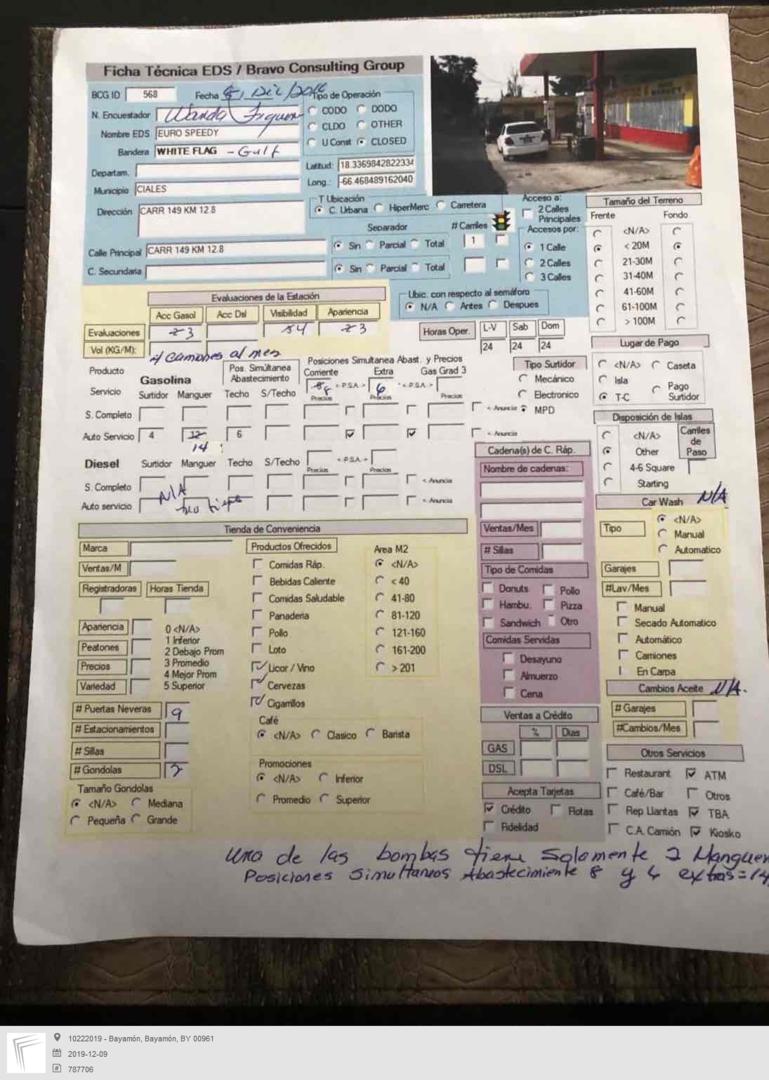 Ficha Técnica EDS / Bravo Consulting Group
BCG ID 568 Fecha Dic/
N. Encuestador Wanda
Nombre EDS EURO SPEEDY
Bandera WHITE FLAG - Gulf
Departam.
Municipio CIALES
Dirección CARR 149 KM 12.8
Calle Principal CARR 149 KM 12.8
C. Secundaria
Tipo de Operación
CODO DODO
CLDO OTHER
U Const CLOSED
Latitud: 18.3369842822334
Long.: -66.468489162040
T Ubicación
C. Urbana HiperMerc Carretera
Separador # Carriles
Sin Parcial Total 1
Sin Parcial Total
Acceso a:
2 Calles Principales
Accesos por:
1 Calle
2 Calles
3 Calles
Ubic. con respecto al semáforo
N/A Antes Despues
Tamaño del Terreno
Frente Fondo
<N/A>
< 20M
21-30M
31-40M
41-60M
61-100M
> 100M
Evaluaciones de la Estación
Acc Gasol Acc Dsl Visibilidad Apariencia
Evaluaciones 3 4 3
Vol (KG/M): 4 camiones al mes
Horas Oper. L-V Sab Dom
24 24 24
Lugar de Pago
<N/A> Caseta
Isla Pago Surtidor
T-C
Producto
Servicio
Gasolina
Surtidor Manguer
Pos. Simúltanea Abastecimiento
Techo S/Techo
Posiciones Simultanea Abast. y Precios
Corriente Extra Gas Grad 3
8 < P.S.A.> 6 < P.S.A.>
Precios Precios Precios
Tipo Surtidor
Mecánico
Electronico
MPD
S. Completo < Anuncia
Auto Servicio 4 12 14 6 < Anuncia
Disposición de Islas
<N/A>
Other
4-6 Square
Starting
Carriles de Paso
Diesel Surtidor Manguer Techo S/Techo
< P.S.A.>
Precios Precios
S. Completo < Anuncia
Auto servicio < Anuncia
N/A
no tiene
Cadena(s) de C. Ráp.
Nombre de cadenas:
Ventas/Mes
# Sillas
Tipo de Comidas
Donuts Pollo
Hambu. Pizza
Sandwich Otro
Comidas Servidas
Desayuno
Almuerzo
Cena
Car Wash N/A
Tipo <N/A>
Manual
Automatico
Garajes
#Lav/Mes
Manual
Secado Automatico
Automático
Camiones
En Carpa
Cambios Aceite N/A.
# Garajes
#Cambios/Mes
Tienda de Conveniencia
Marca
Ventas/M
Registradoras Horas Tienda
Apariencia
Peatones
Precios
Variedad
0 <N/A>
1 Inferior
2 Debajo Prom
3 Promedio
4 Mejor Prom
5 Superior
# Puertas Neveras 9
# Estacionamientos
# Sillas
# Gondolas 2
Tamaño Gondolas
<N/A> Mediana
Pequeña Grande
Productos Ofrecidos
Comidas Ráp.
Bebidas Caliente
Comidas Saludable
Panaderia
Pollo
Loto
Licor / Vino
Cervezas
Cigarrilos
Area M2
<N/A>
< 40
41-80
81-120
121-160
161-200
> 201
Café
<N/A> Clasico Barista
Promociones
<N/A> Inferior
Promedio Superior
Ventas a Crédito
% Dias
GAS
DSL
Acepta Tarjetas
Crédito Flotas
Fidelidad
Otros Servicios
Restaurant ATM
Café/Bar Otros
Rep Llantas TBA
C.A. Camión Kiosko
una de las bombas tiene Solamente 2 Manguer
Posiciones Simultaneos Abastecimiento 8 y 6 extras = 14
10222019 - Bayamón, Bayamón, BY 00961
2019-12-09
787706